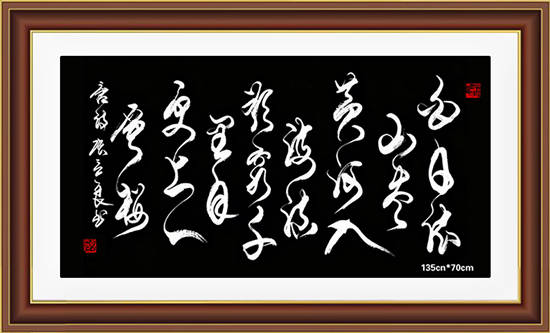 白日依
山盡
黄河入
海流
欲窮千
里目
更上一
層樓
唐詩
135cn*70cm